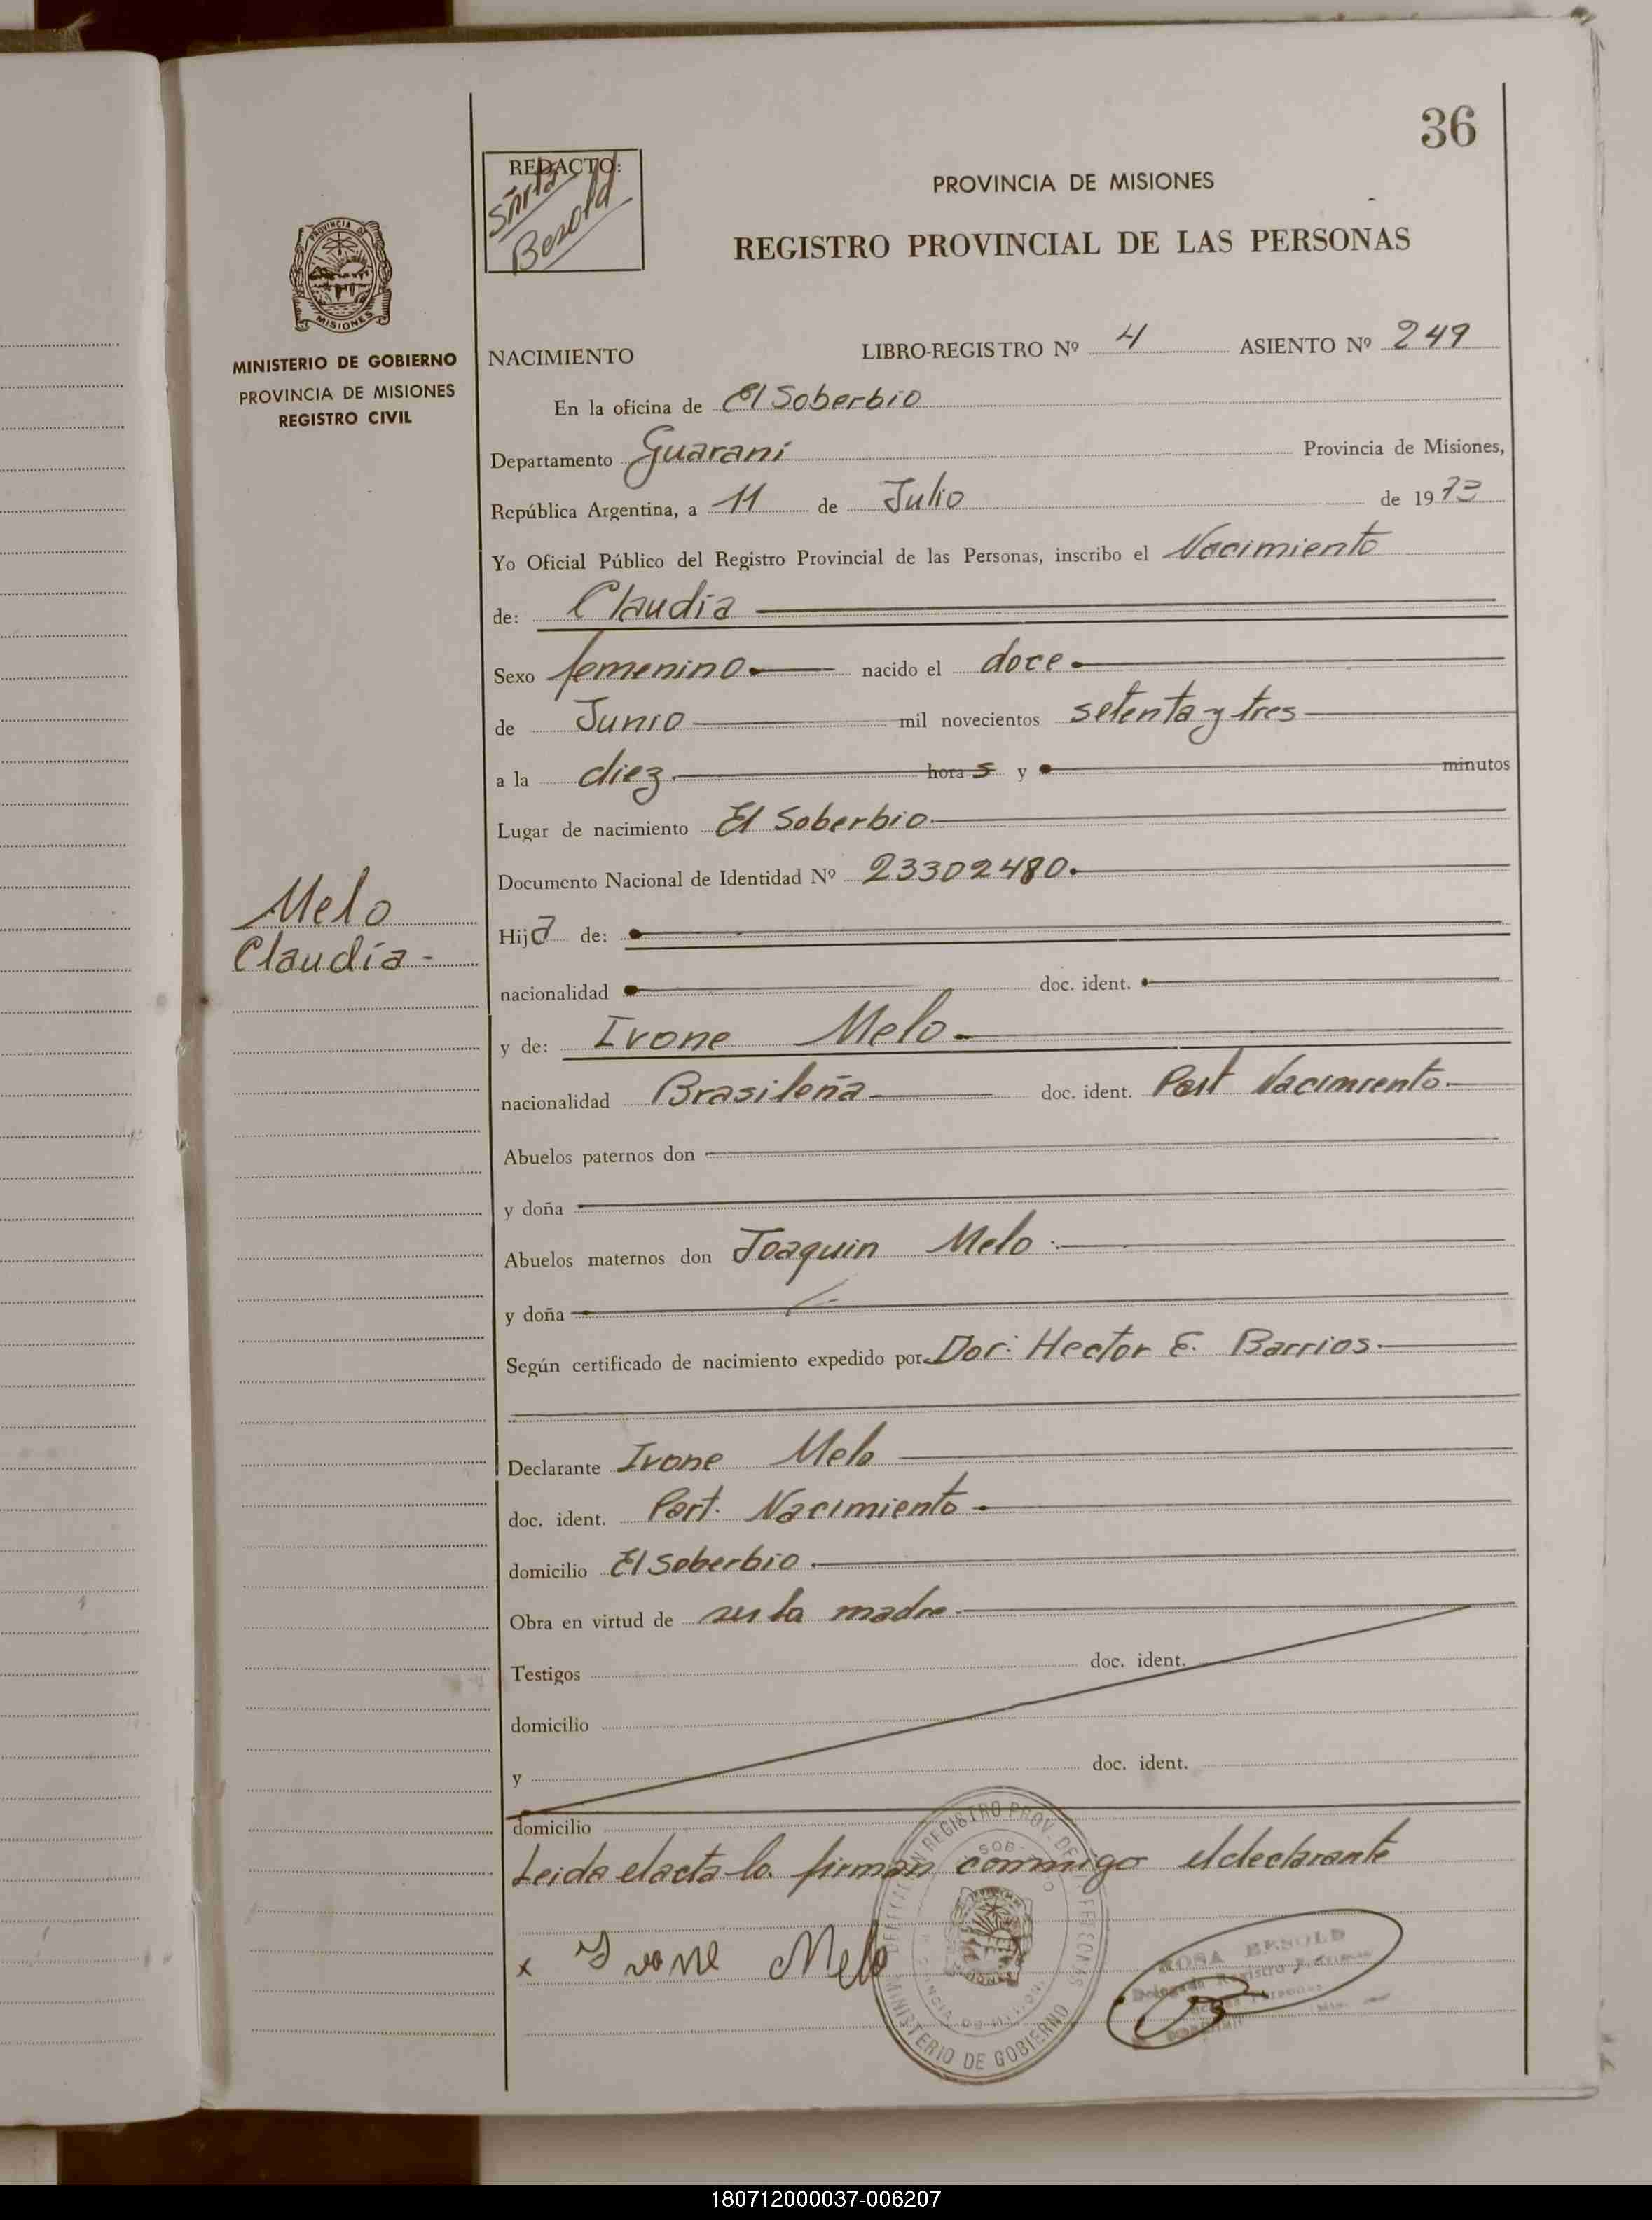 36
REDACTO:
Sñrta
Besold
PROVINCIA DE MISIONES
REGISTRO PROVINCIAL DE LAS PERSONAS
PROVINCIA DE
MISIONES
MINISTERIO DE GOBIERNO
PROVINCIA DE MISIONES
REGISTRO CIVIL
NACIMIENTO LIBRO-REGISTRO Nº 4 ASIENTO Nº 249
En la oficina de El Soberbio
Departamento Guarani Provincia de Misiones,
República Argentina, a 11 de Julio de 1973
Yo Oficial Público del Registro Provincial de las Personas, inscribo el Nacimiento
de: Claudia
Sexo femenino nacido el doce
de Junio mil novecientos setenta y tres
a la diez horas y minutos
Lugar de nacimiento El Soberbio
Documento Nacional de Identidad Nº 23302480
Melo
Claudia -
Hija de:
nacionalidad doc. ident.
y de: Ivone Melo
nacionalidad Brasileña doc. ident. Part Nacimiento
Abuelos paternos don
y doña
Abuelos maternos don Joaquin Melo
y doña
Según certificado de nacimiento expedido por Dor: Hector E. Barrios
Declarante Ivone Melo
doc. ident. Part. Nacimiento
domicilio El Soberbio
Obra en virtud de ser la madre
Testigos doc. ident.
domicilio
y doc. ident.
domicilio
Leida el acta la firman conmigo el declarante
x Ivone Melo
MINISTERIO DE GOBIERNO
ROSA BESOLD
180712000037-006207